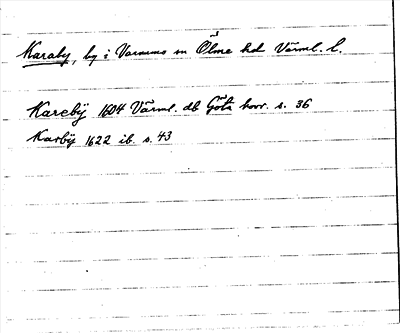 Karaby, by i Varnums sn Ölme hd Värml. l.
Karebÿ 1604 Värml. db Göta hovr. s. 36
Karbÿ 1622 ib. s. 43